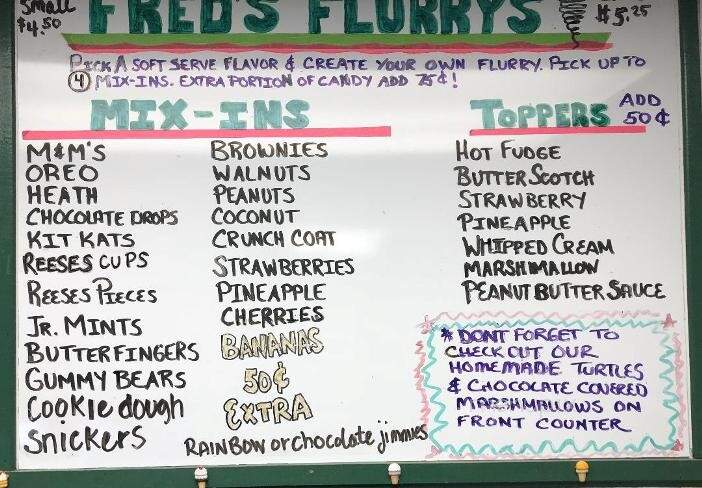 Small
$4.50
FRED'S FLURRYS
$5.25
PICK A SOFT SERVE FLAVOR & CREATE YOUR OWN FLURRY. PICK UP TO
4 MIX-INS. EXTRA PORTION OF CANDY ADD 75¢!
MIX-INS
M&M'S
OREO
HEATH
CHOCOLATE DROPS
KIT KATS
REESES CUPS
REESES PIECES
JR. MINTS
BUTTERFINGERS
GUMMY BEARS
Cookie dough
Snickers
BROWNIES
WALNUTS
PEANUTS
COCONUT
CRUNCH COAT
STRAWBERRIES
PINEAPPLE
CHERRIES
BANANAS
50¢
EXTRA
RAINBOW or chocolate jimmies
TOPPERS ADD 50¢
HOT FUDGE
BUTTER SCOTCH
STRAWBERRY
PINEAPPLE
WHIPPED CREAM
MARSHMALLOW
PEANUT BUTTER SAUCE
* DONT FORGET TO
CHECK OUT OUR
HOMEMADE TURTLES
& CHOCOLATE COVERED
MARSHMALLOWS ON
FRONT COUNTER